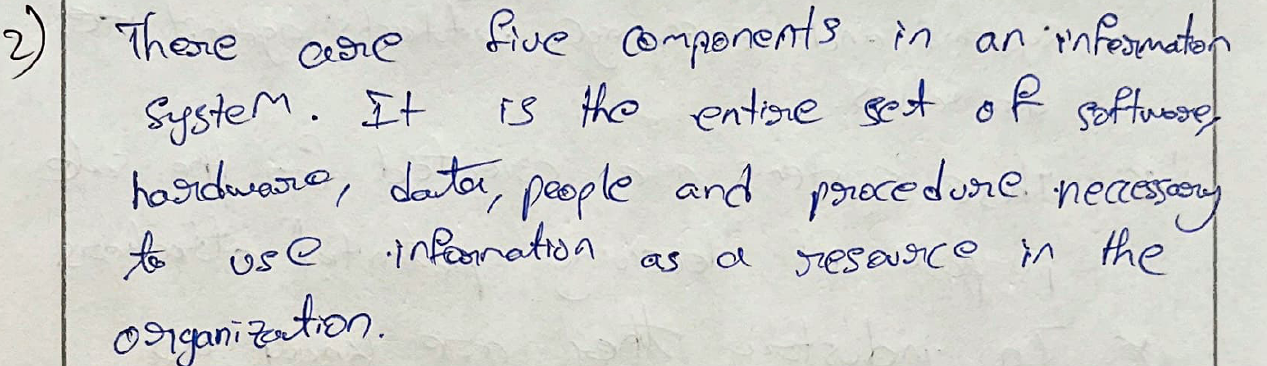 2) There are five components in an information
System. It is the entire set of software,
hardware, data, people and procedure necessary
to use information as a resource in the
organization.